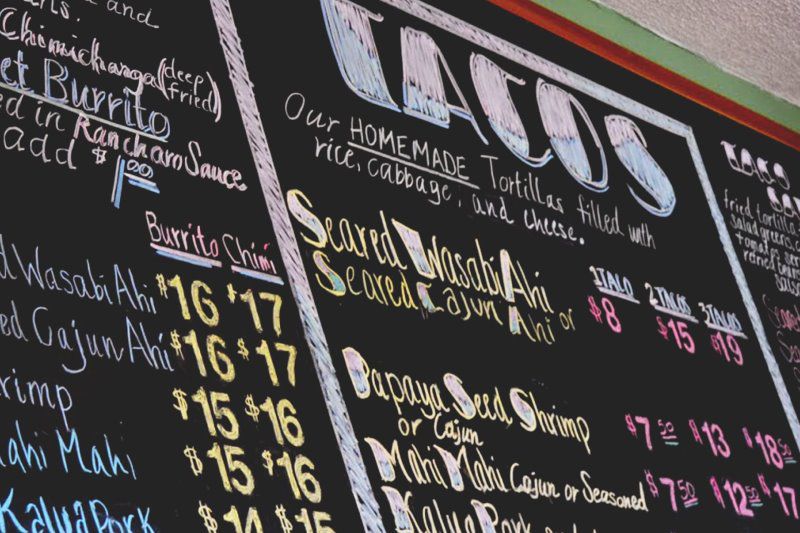 and
Chimichanga (deep fried)
et Burrito
ed in Rancharo Sauce
add $1.00
Burrito Chimi
d Wasabi Ahi $16 $17
ed Cajun Ahi $16 $17
rimp $15 $16
Mahi Mahi $15 $16
Kalua Pork $14 $15
TACOS
Our HOMEMADE Tortillas filled with
rice, cabbage, and cheese.
1 TACO 2 TACOS 3 TACOS
Seared Wasabi Ahi or
Seared Cajun Ahi $8 $15 $19
Papaya Seed Shrimp $7.50 $13 $18.50
or Cajun
Mahi Mahi Cajun or Seasoned $7.50 $12.50 $17
Kalua Pork
TACO
fried tortilla
salad greens,